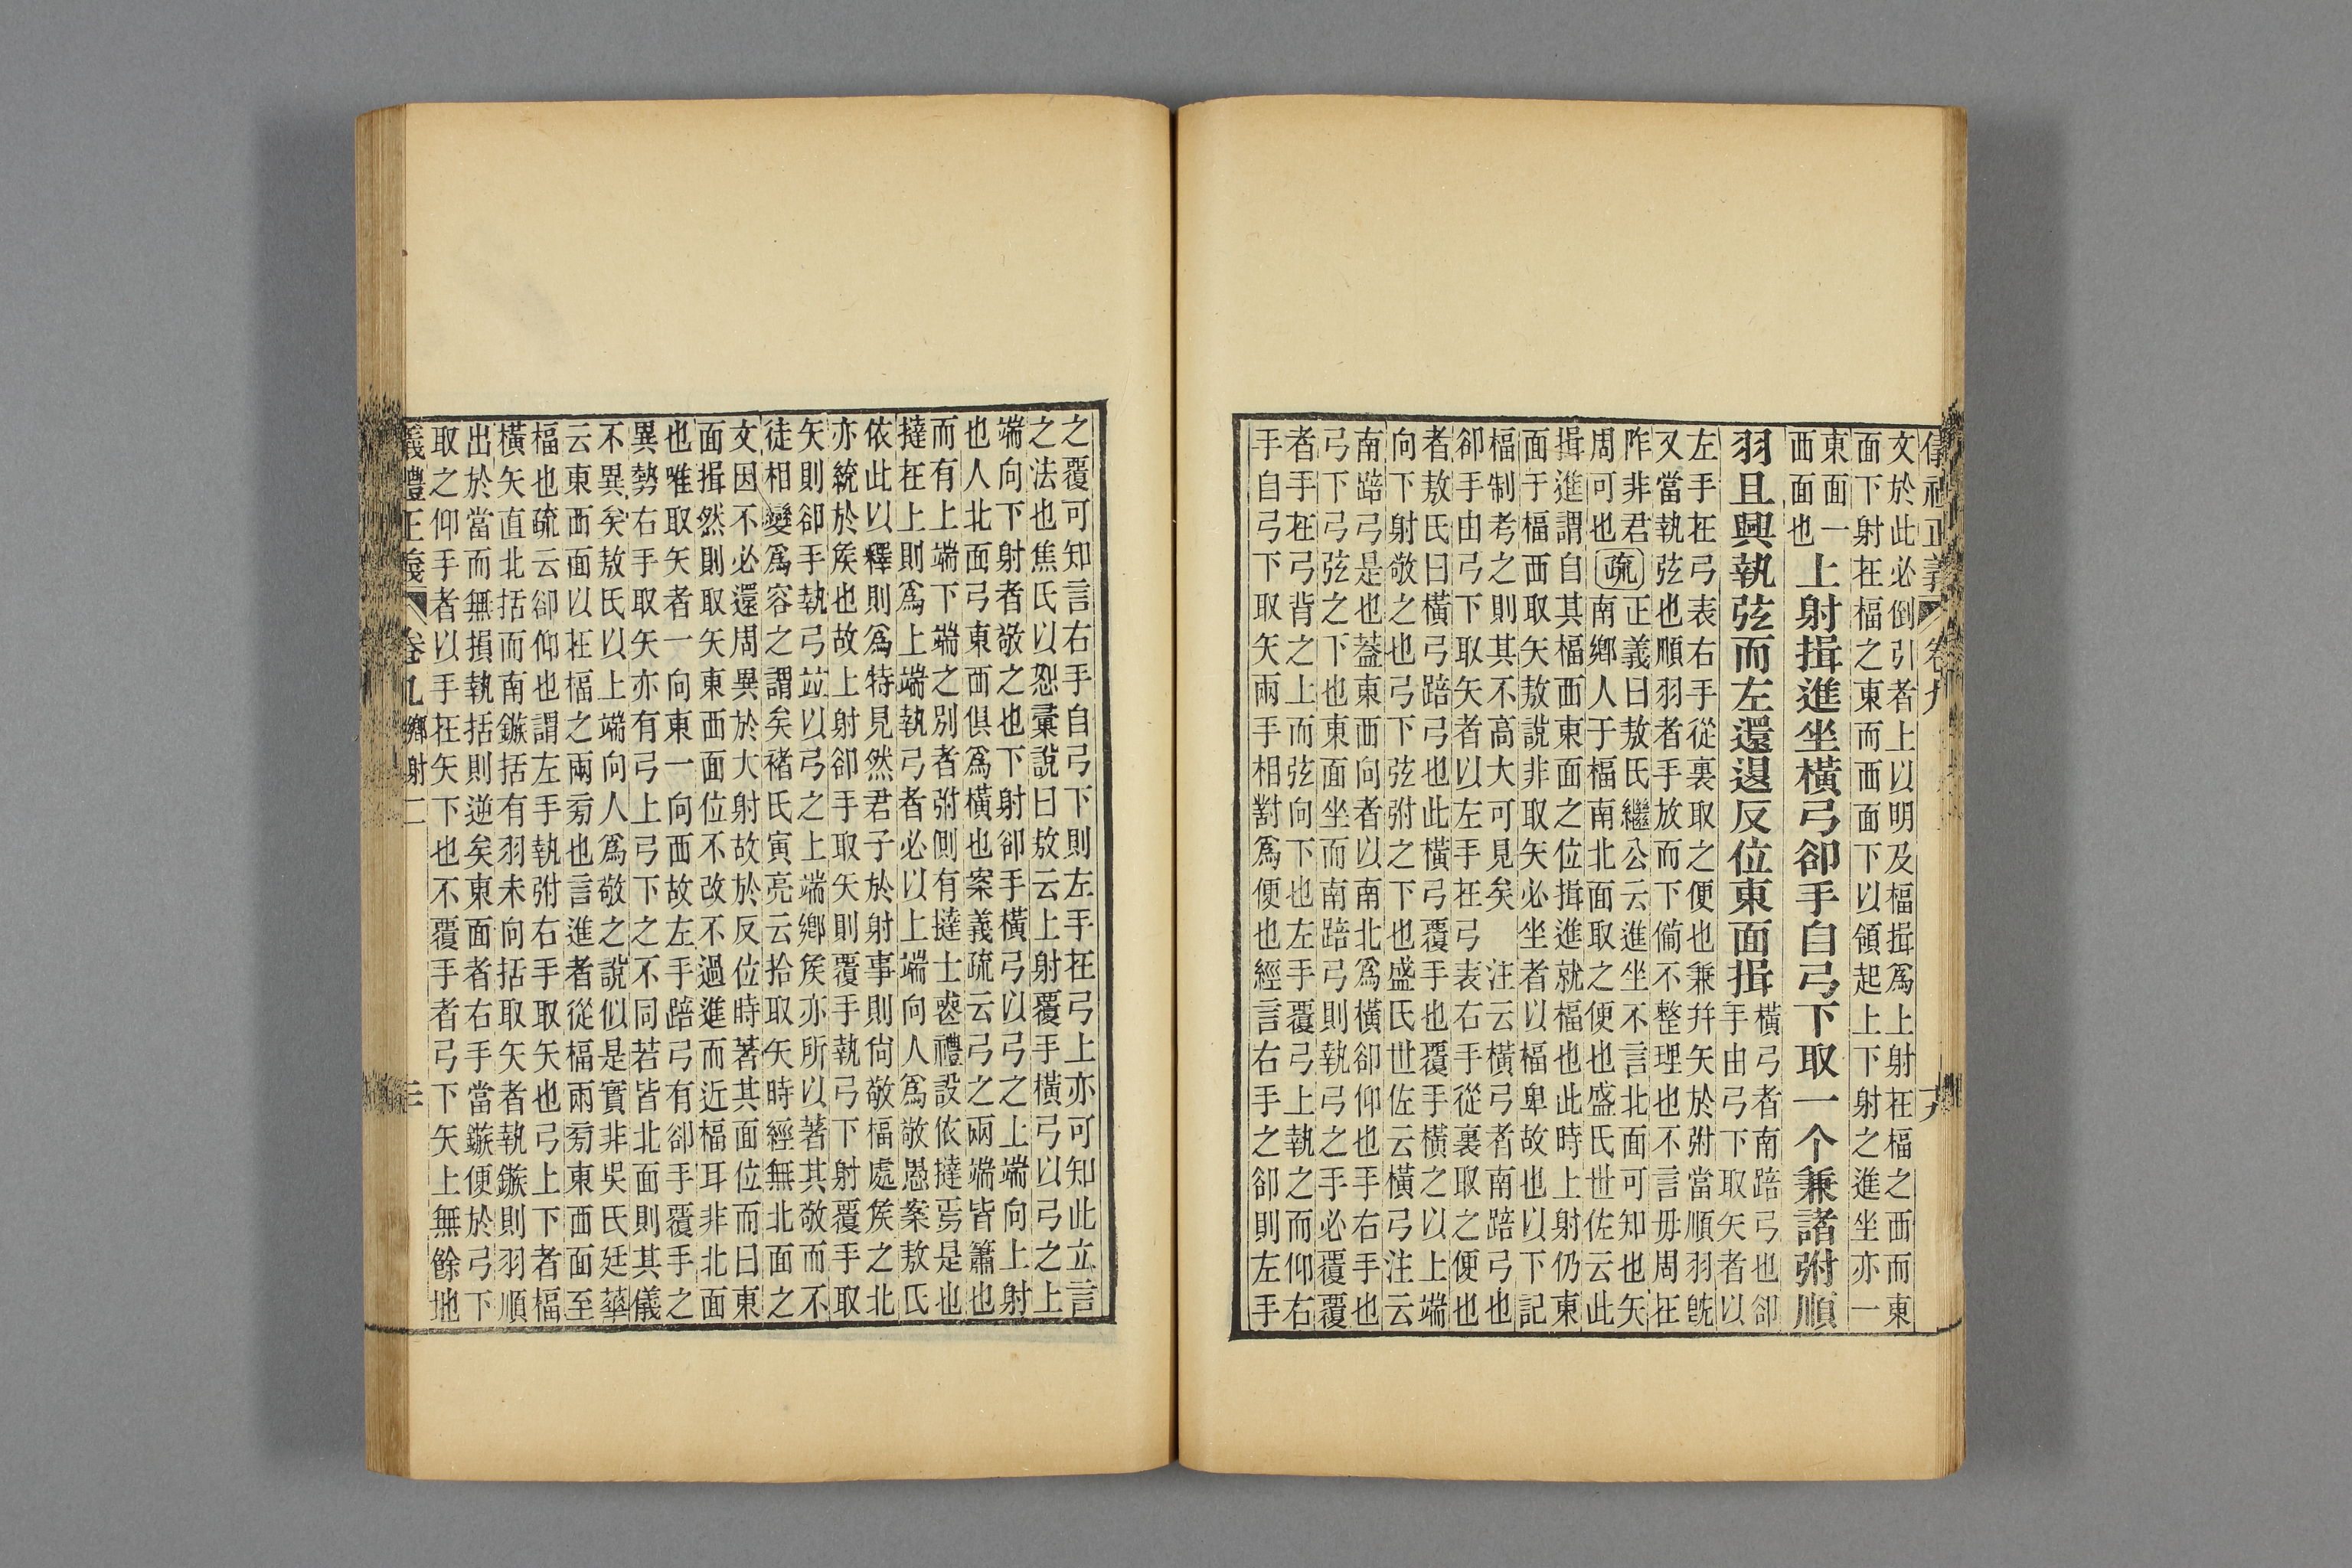 儀禮正義 卷九 十九
文於此必倒引者上以明及楅揖爲上射在楅之西而東
面下射在楅之東而西面下以領起上下射之進坐亦一
東面一
西面也
上射揖進坐橫弓卻手自弓下取一个兼諸弣順
羽且興執弦而左還退反位東面揖
橫弓者南踣弓也卻
手由弓下取矢者以
左手在弓表右手從裏取之便也兼并矢於弣當順羽旣
又當執弦也順羽者手放而下備不整理也不言毋周在
阼非君
周可也
疏
正義曰敖氏繼公云進坐不言北面可知也矢
南鄉人于楅南北面取之便也盛氏世佐云此
揖進謂自其楅西東面之位揖進就楅也此時上射仍東
面于楅西取矢敖說非取矢必坐者以楅卑故也以下記
楅制考之則其不高大可見矣　注云橫弓者南踣弓也
卻手由弓下取矢者以左手在弓表右手從裏取之便也
者敖氏曰橫弓踣弓也此橫弓覆手也覆手橫之以上端
向下射敬之也弓下弦弣之下也盛氏世佐云橫弓注云
南踣弓是也蓋東西向者以南北爲橫卻仰也手右手也
弓下弓弦之下也東面坐而南踣弓則執弓之手必覆覆
者手在弓背之上而弦向下也左手覆弓上執之而仰右
手自弓下取矢兩手相對爲便也經言右手之卻則左手
之覆可知言右手自弓下則左手在弓上亦可知此立言
之法也焦氏以恕彙說曰敖云上射覆手橫弓以弓之上
端向下射者敬之也下射卻手橫弓以弓之上端向上射
也人北面弓東西俱爲橫也案義疏云弓之兩端皆簫也
而有上端下端之別者弣側有撻士喪禮設依撻焉是也
撻在上則爲上端執弓者必以上端向人爲敬愚案敖氏
依此以釋則爲特見然君子於射事則尙敬楅處矦之北
亦統於矦也故上射卻手取矢則覆手執弓下射覆手取
矢則卻手執弓竝以弓之上端鄉矦亦所以著其敬而不
徒相變爲容之謂矣褚氏寅亮云拾取矢時經無北面之
文因不必還周異於大射故於反位時著其面位而曰東
面揖然則取矢東西面位不改不過進而近楅耳非北面
也唯取矢者一向東一向西故左手踣弓有卻手覆手之
異勢右手取矢亦有弓上弓下之不同若皆北面則其儀
不異矣敖氏以上端向人爲敬之說似是實非吳氏廷華
云東西面以在楅之兩旁也言進者從楅兩旁東西面至
楅也疏云卻仰也謂左手執弣右手取矢也弓上下者楅
橫矢直北括而南鏃括有羽未向括取矢者執鏃則羽順
出於當而無損執括則逆矣東面者右手當鏃便於弓下
取之仰手者以手在矢下也不覆手者弓下矢上無餘地
義禮正義 卷九鄉射二